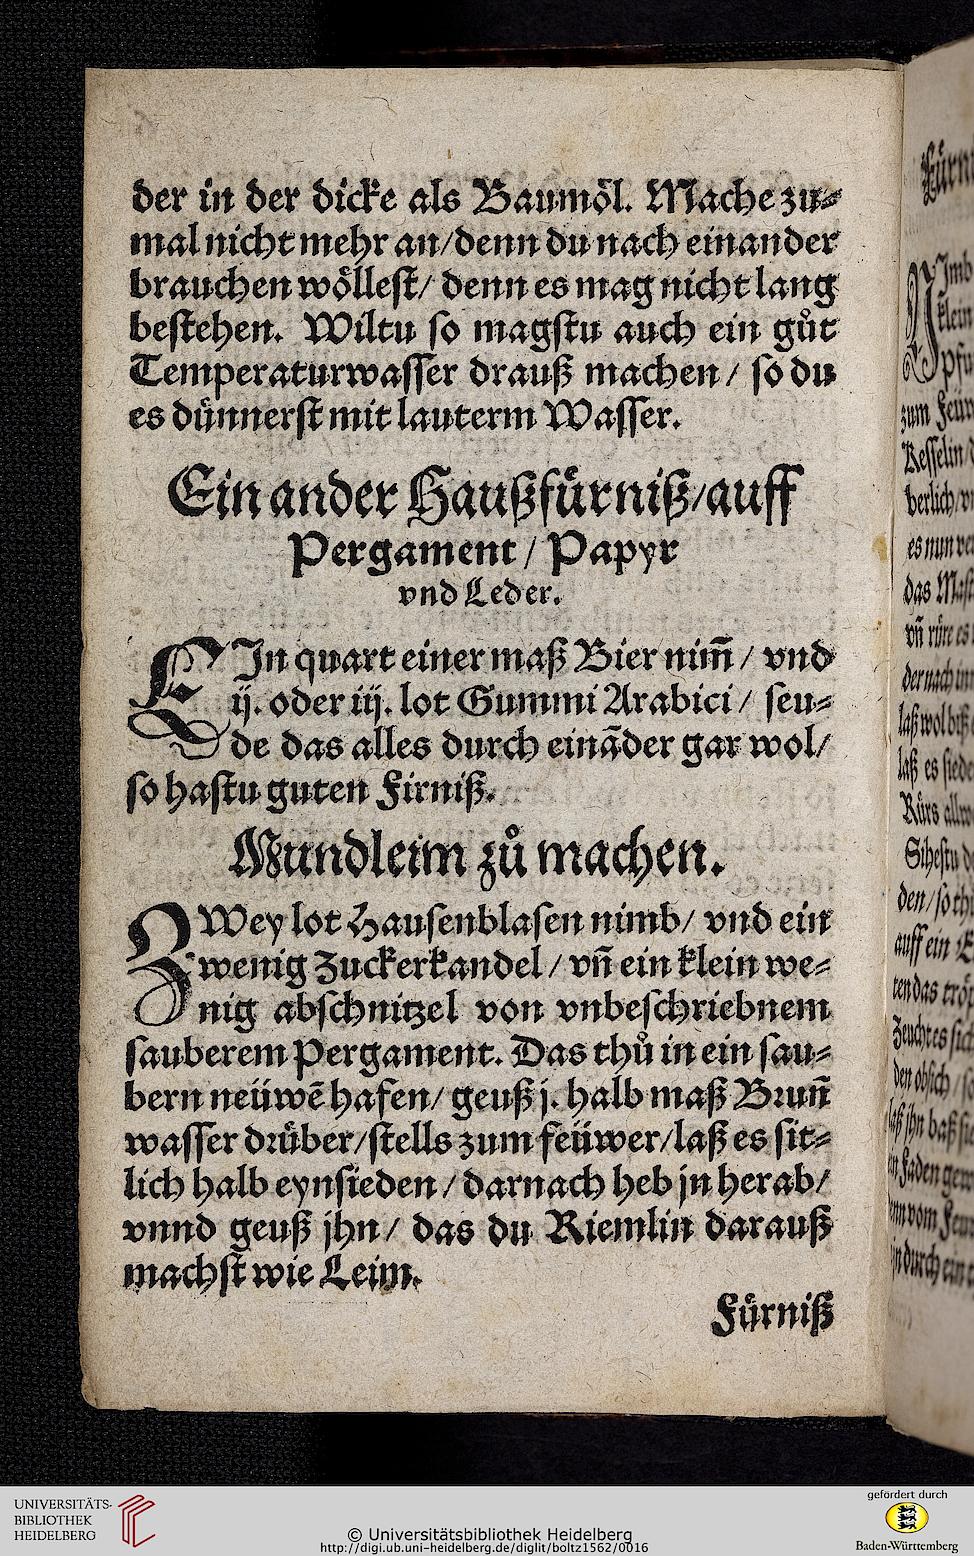 der in der dicke als Baumöl. Mache zu⸗
mal nicht mehr an/denn du nach einander
brauchen wöllest/ denn es mag nicht lang
bestehen. Wiltu so magstu auch ein gůt
Temperaturwasser drauß machen/ so du
es dünnerst mit lauterm Wasser.
Ein ander Haußfürniß/auff
Pergament / Papyr
vnd Leder.
EIn quart einer maß Bier nim̃ / vnd
ij. oder iij. lot Gummi Arabici / seu⸗
de das alles durch einãder gar wol/
so hastu guten Firniß.
Mundleim zů machen.
ZWey lot Hausenblasen nimb/ vnd ein
wenig Zuckerkandel / vñ ein klein we⸗
nig abschnitzel von vnbeschriebnem
sauberem Pergament. Das thů in ein sau⸗
bern neüwẽ hafen/ geuß j. halb maß Brun̄
wasser drüber/stells zum feüwer/laß es sit⸗
lich halb eynsieden / darnach heb jn herab/
vnnd geuß jhn/ das du Riemlin darauß
machst wie Leim.
Fürniß
zum Feür
Kesselin
es nun
das
vñ rüre es
der nach
laß wol biß
laß es siede
Rürs
Sihestu
den/so
auff ein
ten das
den obsich
laß jhn baß
Faden
vom
durch
UNIVERSITÄTS-
BIBLIOTHEK
HEIDELBERG
© Universitätsbibliothek Heidelberg
http://digi.ub.uni-heidelberg.de/diglit/boltz1562/0016
gefördert durch
Baden-Württemberg